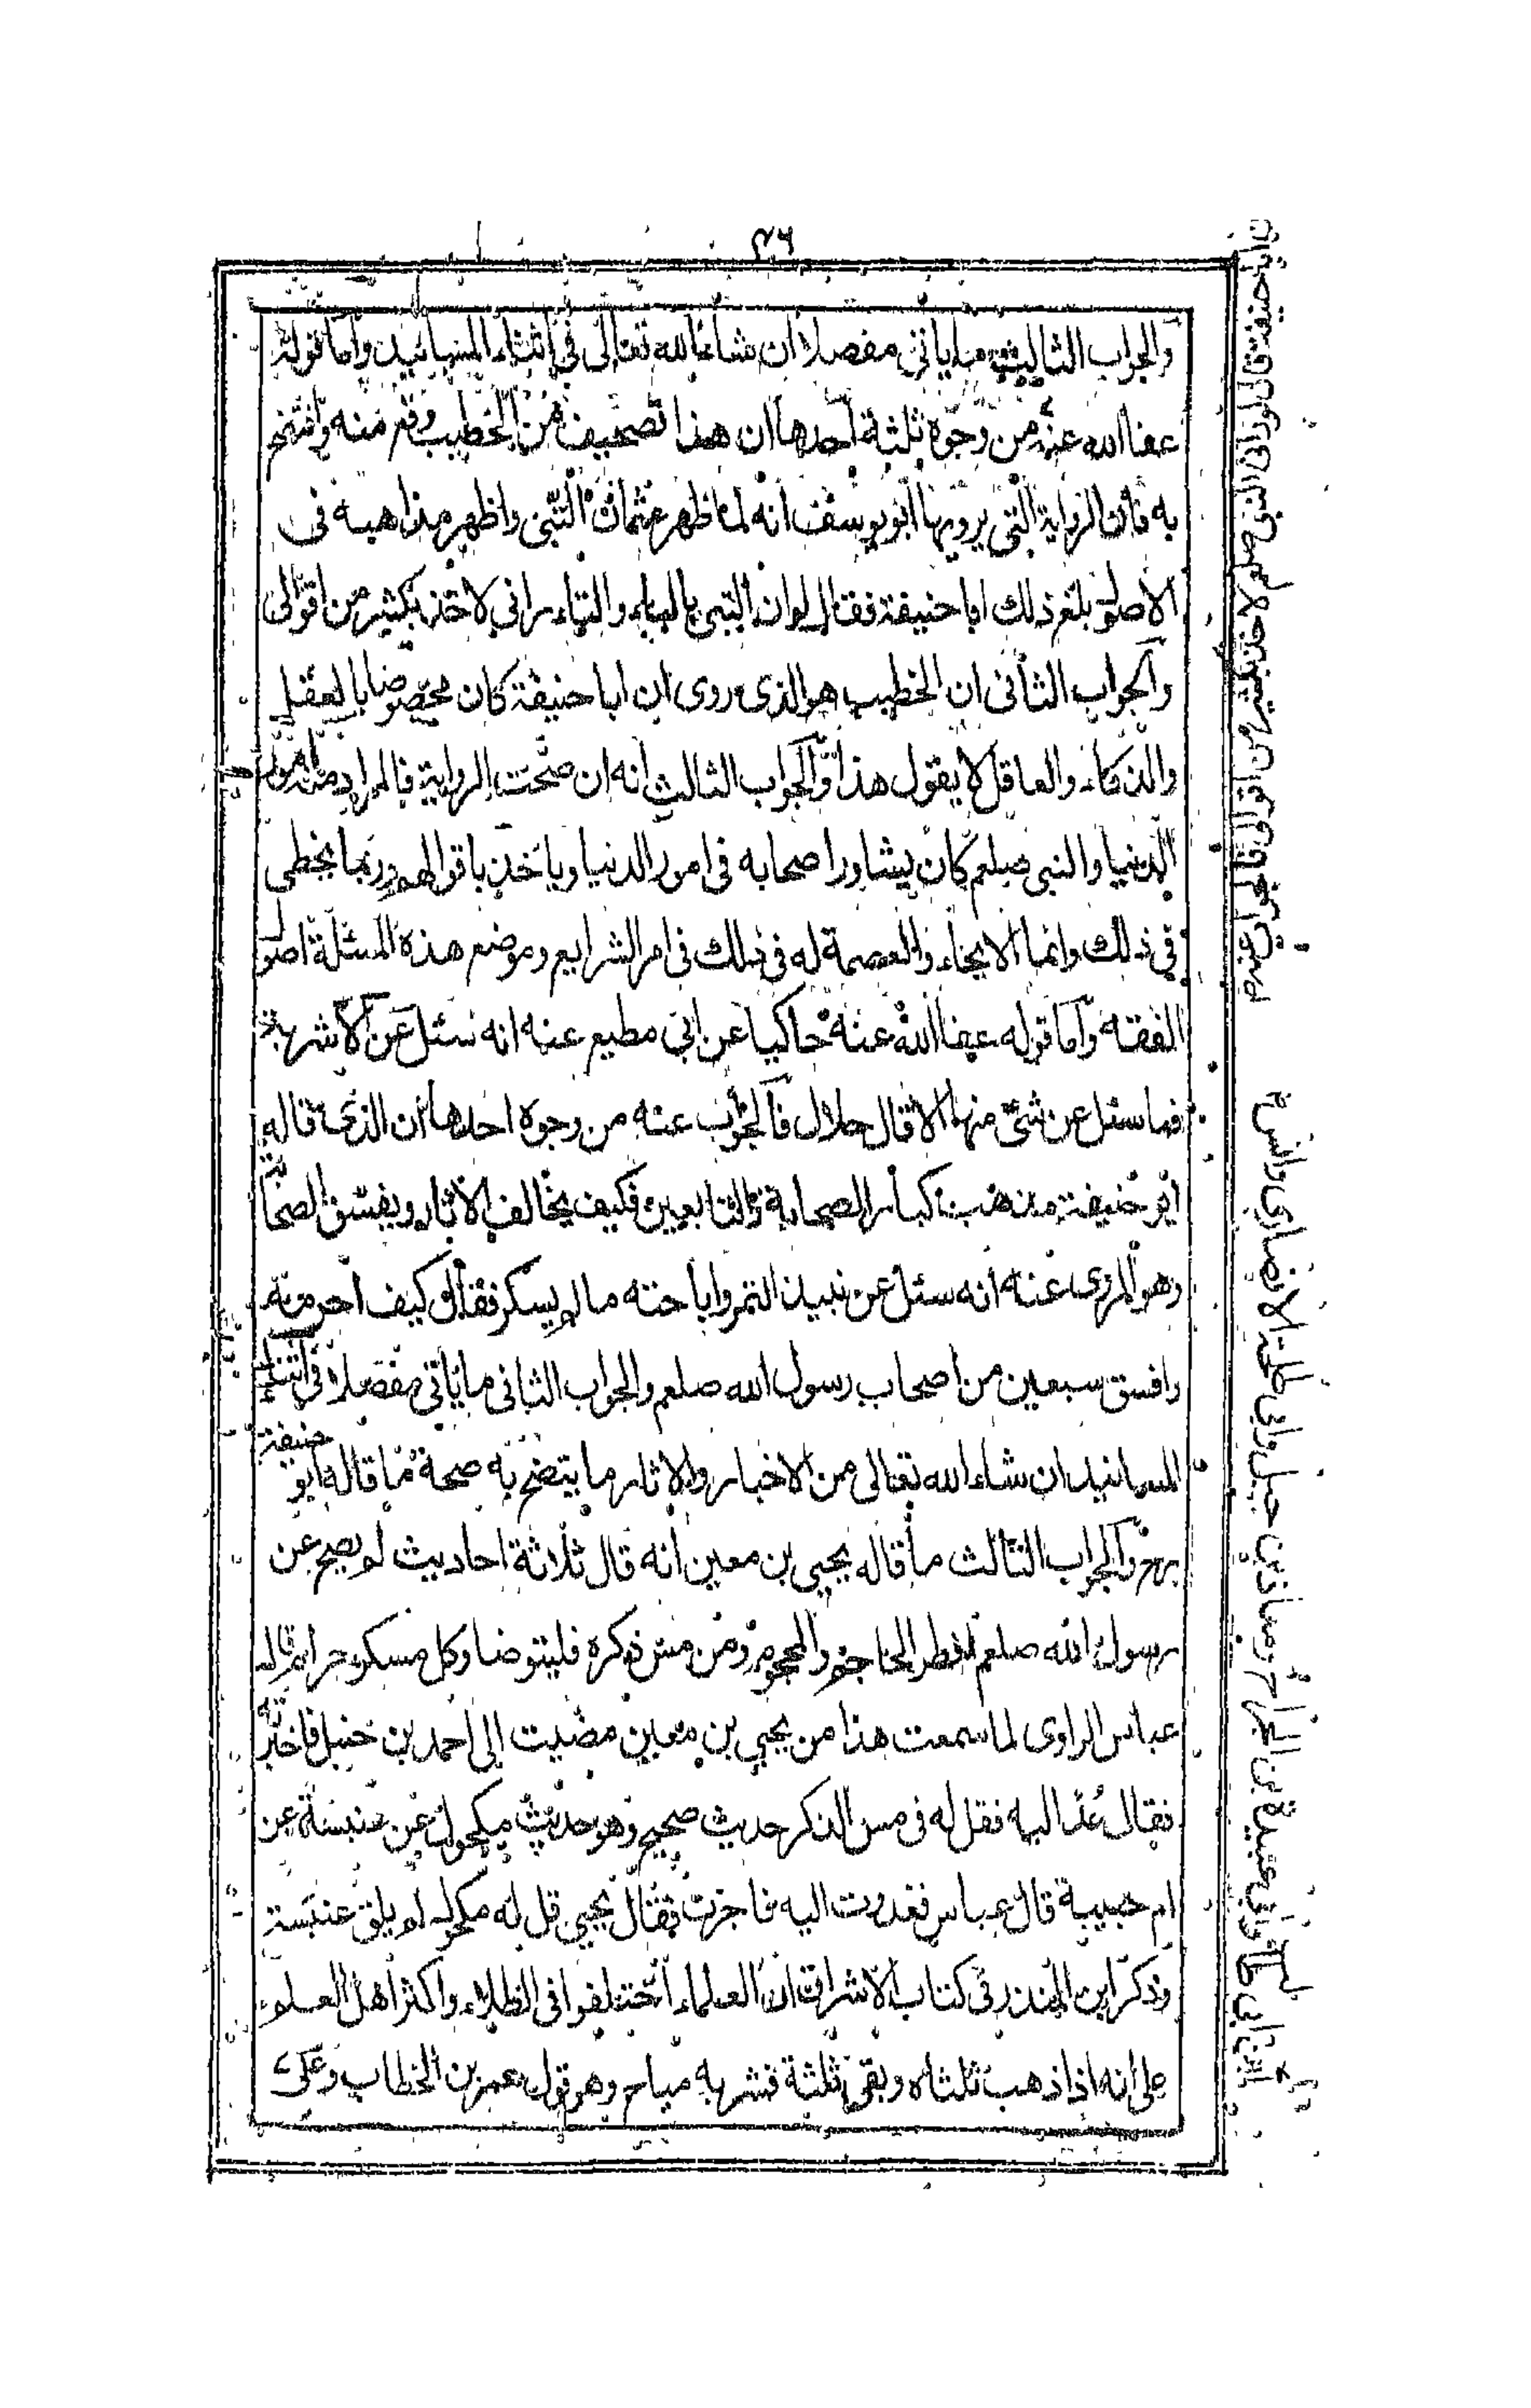 ٤٦
والجواب الثالث ما ياتى مفصلا ان شاء الله تعالى فى اثناء المسانيد واما قوله
عفا الله عنه من وجوه ثلثة احدها ان هذا تصحيف من الخطيب وقع منه وافتضح
به فان الرواية التى يرويها ابو يوسف انه لما ظهر عثمان البتى واظهر مذاهبه فى
الاصول بلغ ذلك ابا حنيفة فقال لو ان البتى بالباء والتاء رانى لاخذ بكثير من اقوالى
والجواب الثانى ان الخطيب هو الذى روى ان ابا حنيفة كان مخصوصا بالعقل
والذكاء والعاقل لا يقول هذا والجواب الثالث انه ان صحت الرواية فالمراد منه امور
الدنيا والنبى صلعم كان يشاور اصحابه فى امور الدنيا وياخذ باقوالهم وربما يخطى
فى ذلك وانما الايحاء والعصمة له فى ذلك فى امر الشرايع وموضع هذه المسئلة اصول
الفقه واما قوله عفا الله عنه حاكيا عن ابى مطيع عنه انه سئل عن الاشربة
فما سئل عن شئ منها الا قال حلال فالجواب عنه من وجوه احدها ان الذى قاله
ابو حنيفة مذهب كبار الصحابة والتابعين فكيف يخالف الاثار ويفسق الصحابة
وهو المروى عنه انه سئل عن نبيذ التمر واباحته ما لم يسكر فقال كيف احرمه
وافسق سبعين من اصحاب رسول الله صلعم والجواب الثانى ما ياتى مفصلا فى اثناء
المسانيد ان شاء الله تعالى من الاخبار والاثار ما يتضح به صحة ما قاله ابو حنيفة
رحم والجواب الثالث ما قاله يحيى بن معين انه قال ثلاثة احاديث لم يصح عن
رسول الله صلعم افطر الحاجم والمحجوم ومن مس ذكره فليتوضا وكل مسكر حرام قال
عباس الراوى لما سمعت هذا من يحيى بن معين مضيت الى احمد بن حنبل فاخبرته
فقال عد اليه فقل له فى مس الذكر حديث صحيح وهو حديث مكحول عن عنبسة عن
ام حبيبة قال عباس فغدوت اليه فاخبرت فقال يحيى قل له مكحول لم يلق عنبسة
وذكر ابن المنذر فى كتاب الاشراف ان العلماء اختلفوا فى الطلاء واكثر اهل العلم
على انه اذا ذهب ثلثاه وبقى ثلثة فشربه مباح وهو قول عمر بن الخطاب وعلى
ابن ابى طالب وابى عبيدة بن الجراح ومعاذ بن جبل وابى طلحة الانصارى وانس